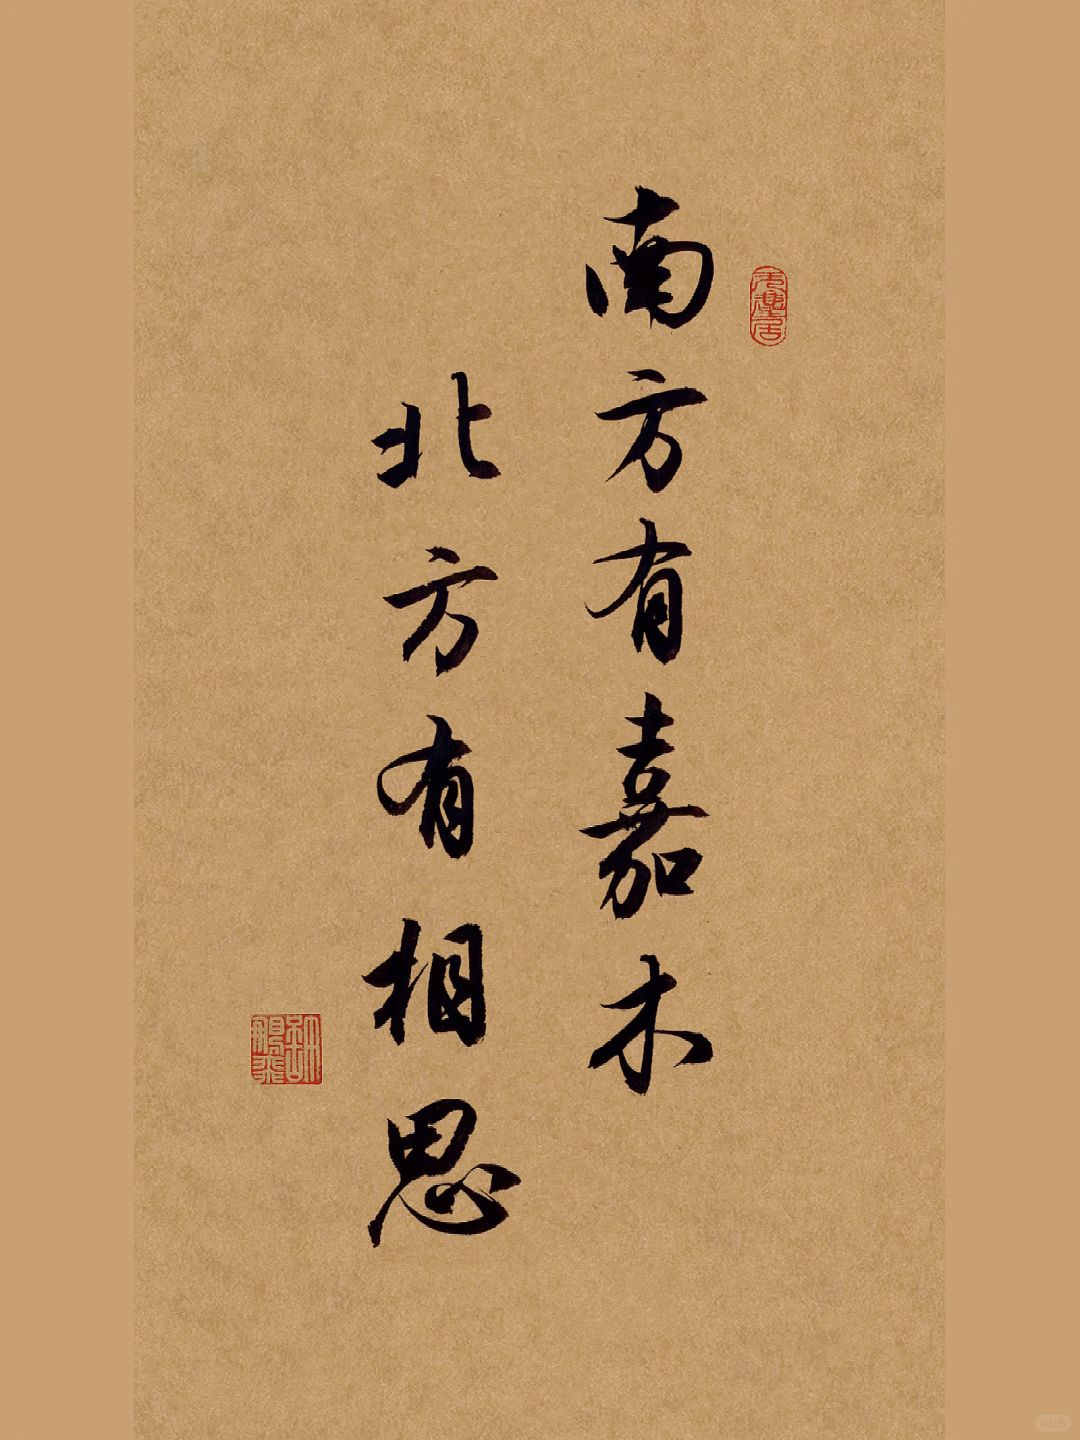 南方有嘉木
北方有相思